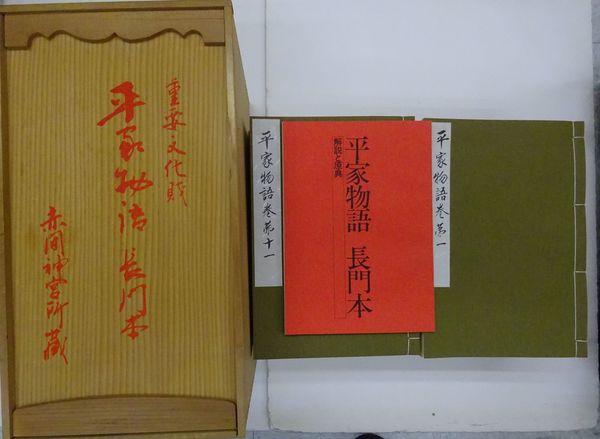 重要文化財
平家物語 長門本
赤間神宮所蔵
平家物語巻第十一
解説と原典
平家物語 長門本
平家物語巻第一